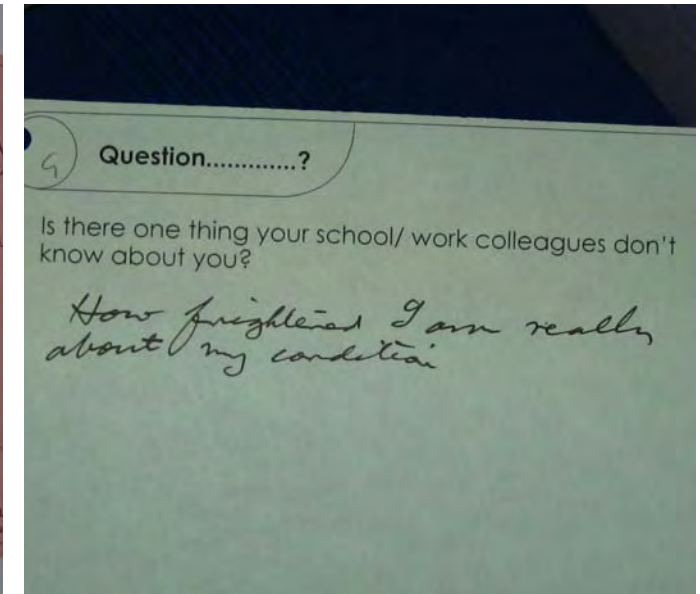 9
Question.............?
Is there one thing your school/ work colleagues don't
know about you?
How frightened I am really
about my condition